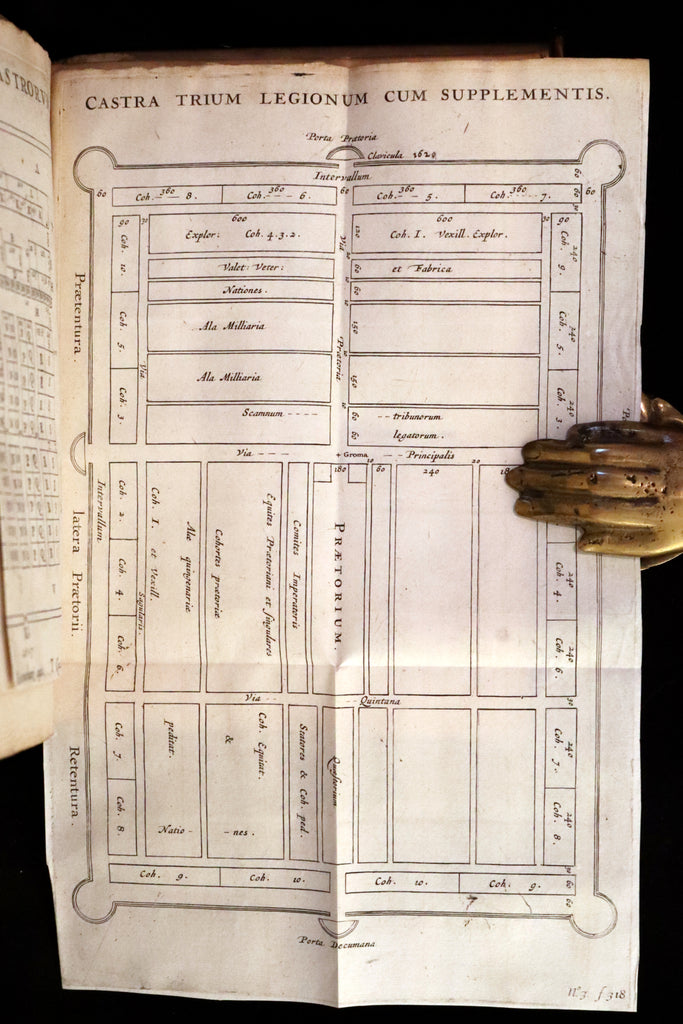 CASTRA TRIUM LEGIONUM CUM SUPPLEMENTIS.
Porta Prætoria
Clavicula 1620
Intervallum
60
60
60
60
60
360
Coh. - - - 8.
360
Coh. - - - 6.
360
Coh. - - - 5.
360
Coh. - - - 7.
90
30
600
Explor: Coh. 4. 3. 2.
120
600
Coh. I. Vexill. Explor.
30
90
Coh. 10.
Coh. 5.
Coh. 3.
Via
Valet: Veter:
60
et Fabrica
Nationes.
60
Ala Milliaria
150
Ala Milliaria
150
Via
Prætoria
Scamnum - - - -
60
- - tribunorum
60
legatorum.
240
Coh. 9.
240
Coh. 5.
240
Coh. 3.
Prætentura.
Via - - - -
+ Groma
- - Principalis
180
10
60
240
20
Intervallum
Coh. 2.
Coh. 4.
Coh. 6.
Sagularis.
Coh. I. et Vexill.
Alæ quingenariæ
Cohortes prætoriæ
Equites Prætoriani et singulares
Comites Imperatoris
PRÆTORIUM.
240
Coh. 4.
240
Coh. 6.
30
latera Prætorii.
Via - - -
Quintana
Coh. 7.
Coh. 8.
peditat.
&
Coh. Equitat.
Statores & Coh. ped.
Quæstorium
Natio - -
- nes.
240
Coh. 7.
240
Coh. 8.
Retentura.
Coh. 9.
Coh. 10.
Coh. 10.
Coh. 9.
30
60
60
Porta Decumana
N.º 3. f. 318